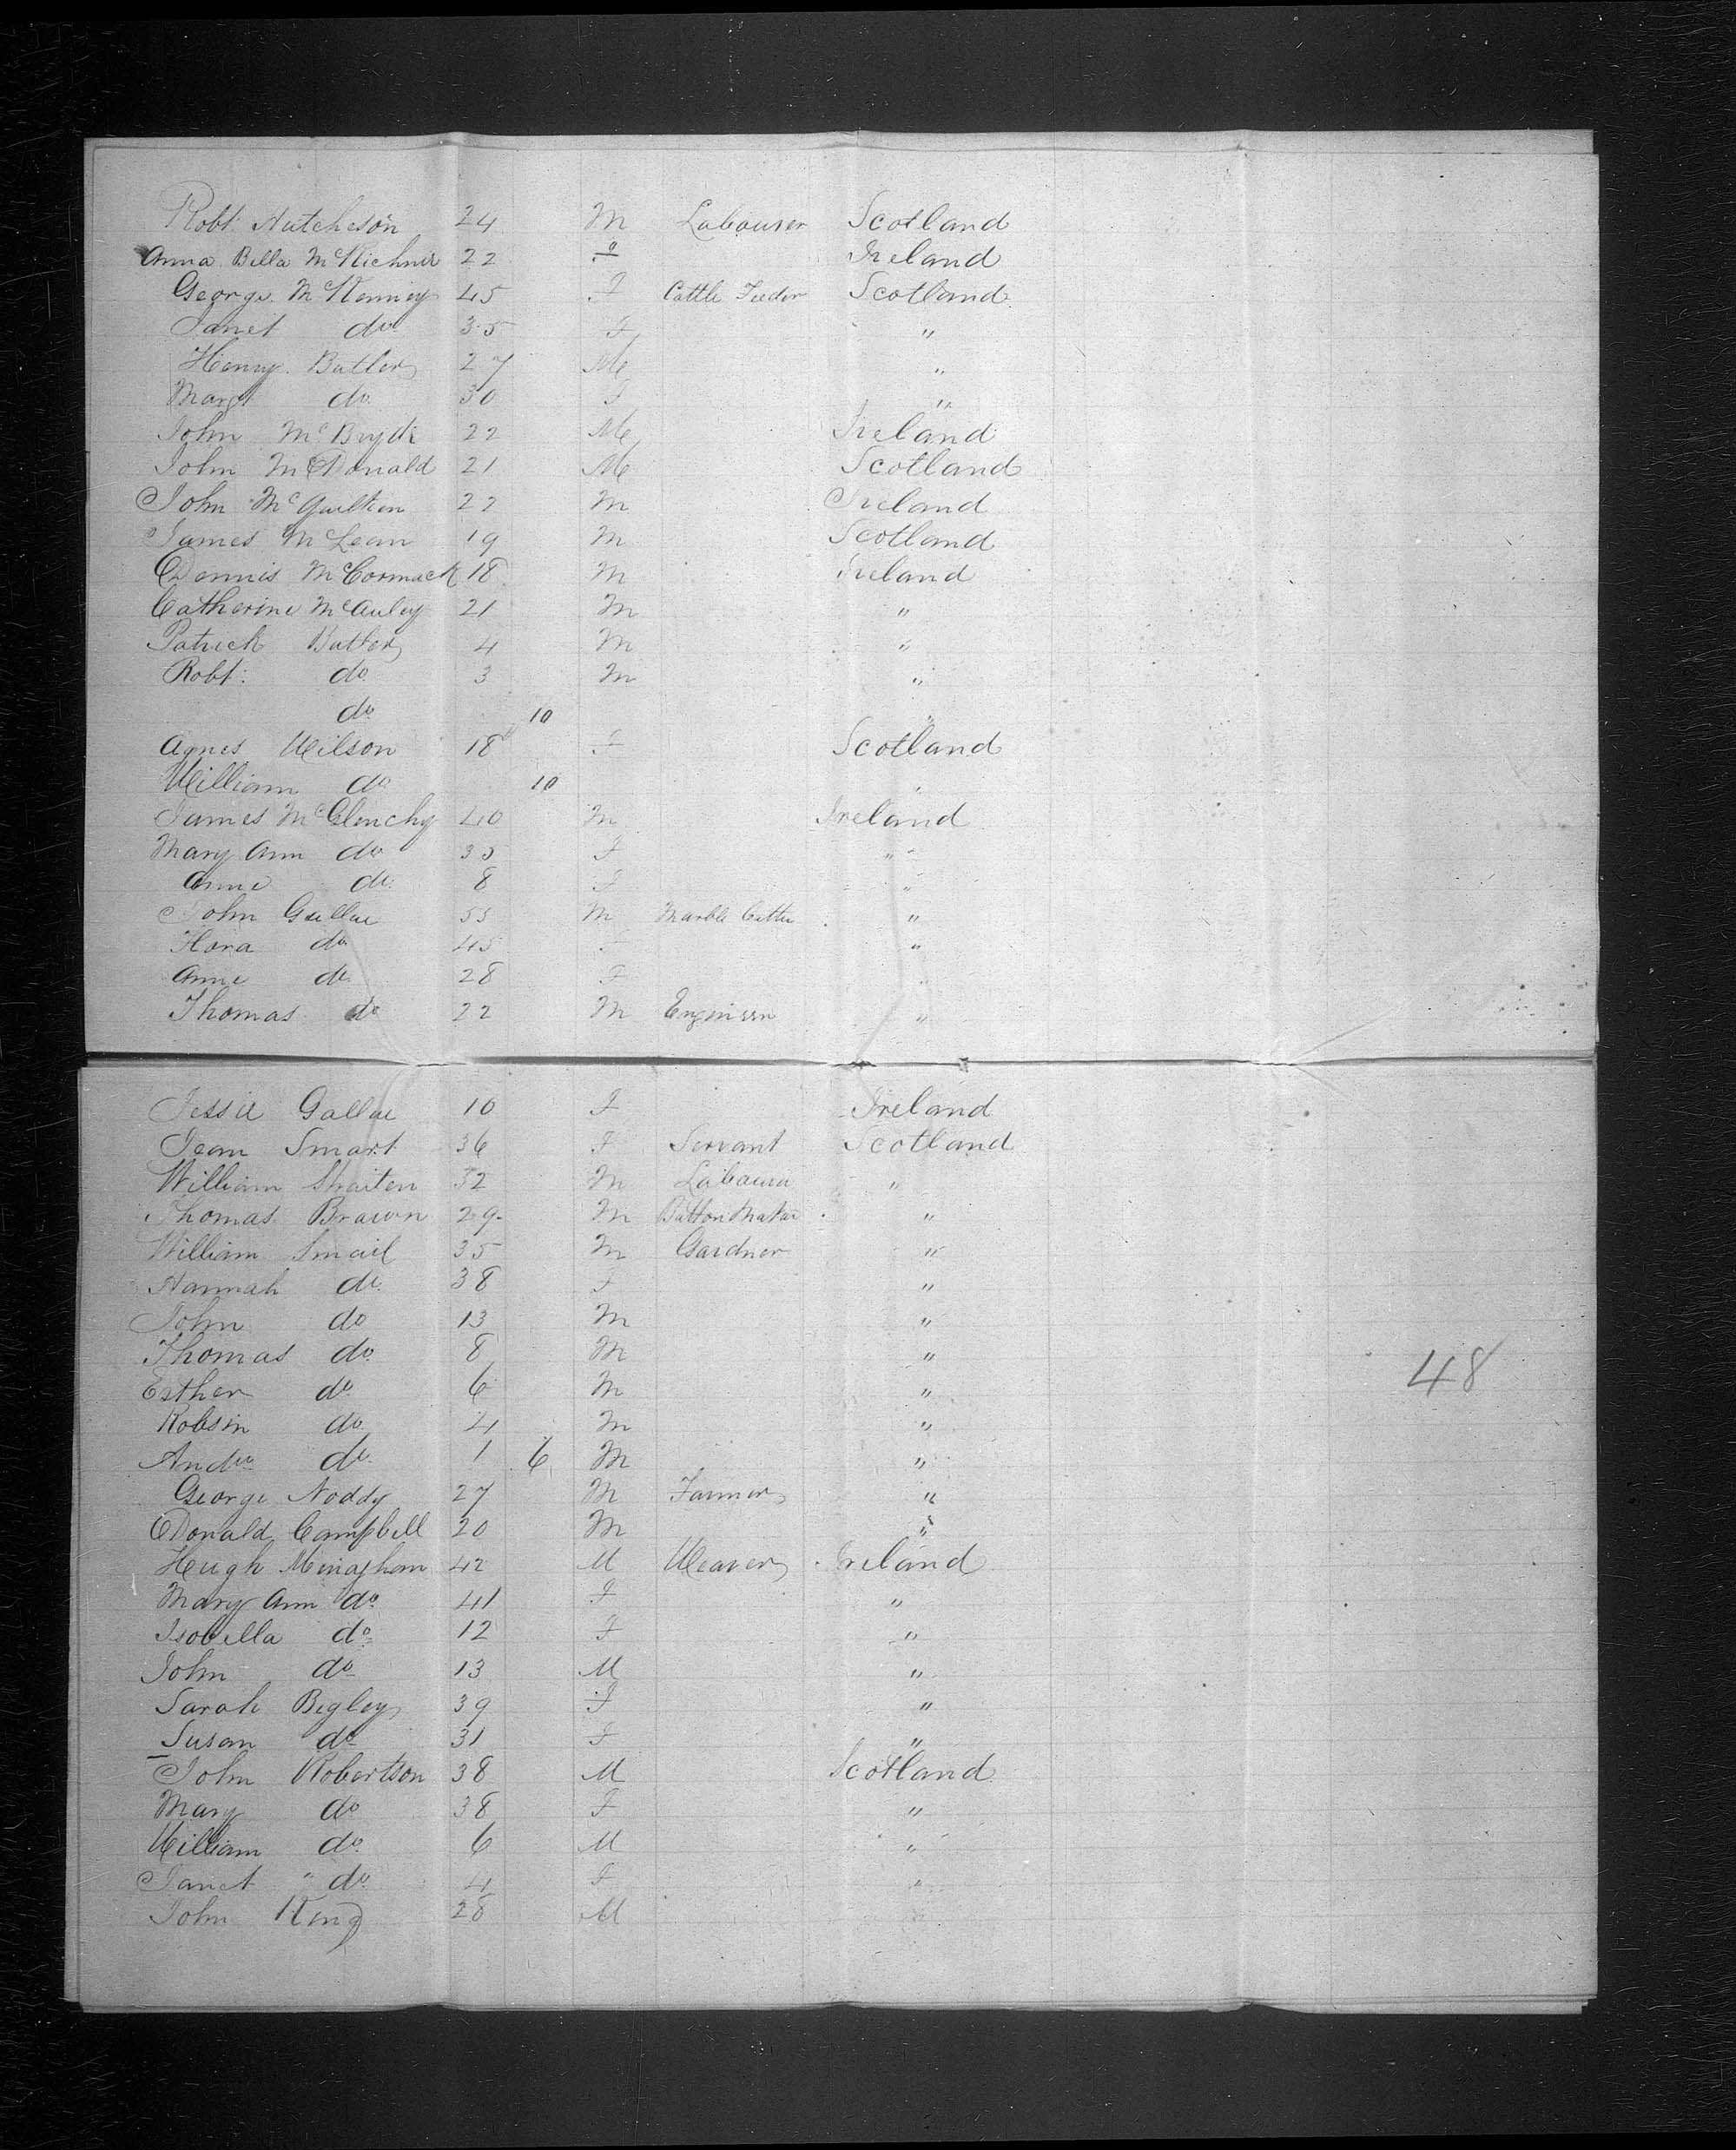 Robt. Hutcheson 24 M Labourer Scotland
Anna Bella 22 Ireland
George McKenney 45 F Cattle Feeder Scotland
Janet do 35 F "
Henry Butler 27 M "
Margt do 30 F "
John McBryde 22 M Ireland
John McDonald 21 M Scotland
John McQuilken 22 M Ireland
James McLean 19 M Scotland
Dennis McCormack 18 M Ireland
Catherine McAuley 21 M "
Patrick Butler 4 M "
Robt. do 3 M "
do 10 "
Agnes Wilson 18 F Scotland
William do 10 "
James McClenchy 40 M Ireland
Mary Ann do 35 F "
Anne do 8 F "
John 55 M Marble Cutter "
Flora do 45 F "
Anne do 28 F "
Thomas do 22 M Engineer "
Jessie Gallae 10 F Ireland
Jean Smart 36 F Servant Scotland
William Straiten 32 M Labourer "
Thomas Brawn 29 M Button Maker "
William Smail 35 M Gardner "
Hannah do 38 F "
John do 13 M "
Thomas do 8 M "
48
Esther do 6 M "
Robsin do 4 M "
Andw do 1 6 M "
George Noddy 27 M Farmer "
Donald Campbell 20 M "
Hugh Minaghan 42 M Weaver Ireland
Mary Ann do 41 F "
Isobella do 12 F "
John do 13 M "
Sarah Begley 39 F "
Susan do 31 F "
John Robertson 38 M Scotland
Mary do 38 F "
William do 6 M "
Janet " do 4 F "
John King 28 M